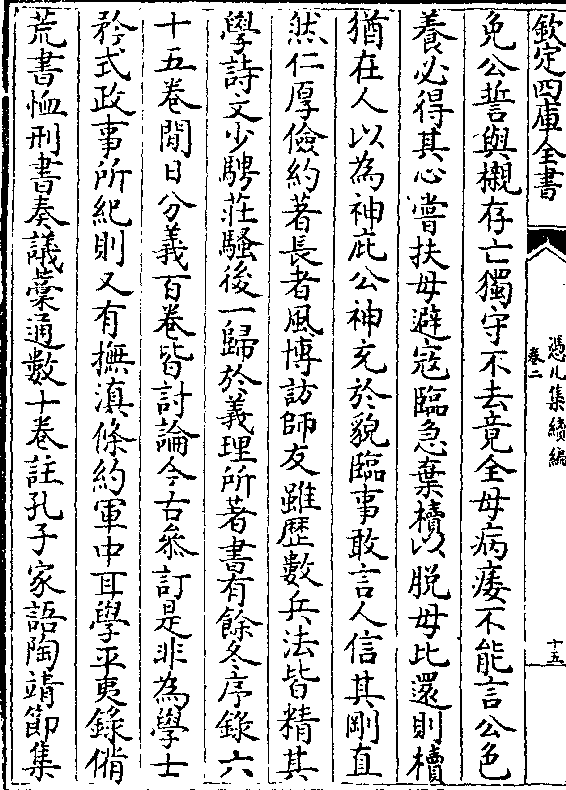 欽定四庫全書
憑几集續編
卷二
十五
免公誓與櫬存亡獨守不去竟全母病痿不能言公色
養必得其心嘗扶母避寇臨急棄櫝以脫母比還則櫝
猶在人以為神庇公神充於貌臨事敢言人信其剛直
然仁厚儉約著長者風博訪師友雖歷數兵法皆精其
學詩文少騁莊騷後一歸於義理所著書有餘冬序錄六
十五卷閒日分義百卷皆討論今古叅訂是非為學士
矜式政事所紀則又有撫滇條約軍中耳學平夷錄備
荒書恤刑書奏議藁通數十卷註孔子家語陶靖節集